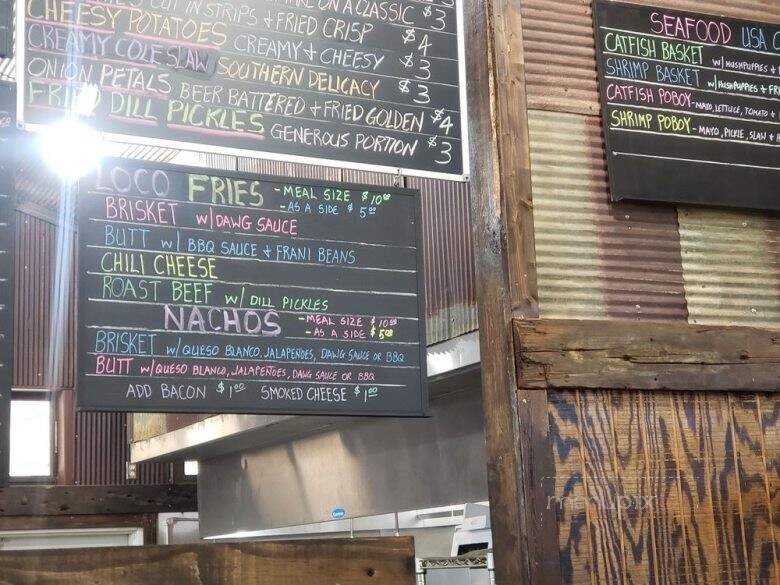 CUT IN STRIPS + FRIED CRISP $3
CHEESY POTATOES CREAMY + CHEESY $4
CREAMY COLE SLAW SOUTHERN DELICACY $3
ONION PETALS BEER BATTERED + FRIED GOLDEN $4
FRIED DILL PICKLES GENEROUS PORTION $3
LOCO FRIES - MEAL SIZE $10.00
- AS A SIDE $5.00
BRISKET W/ DAWG SAUCE
BUTT W/ BBQ SAUCE + FRANI BEANS
CHILI CHEESE
ROAST BEEF W/ DILL PICKLES
NACHOS - MEAL SIZE $10.00
- AS A SIDE $5.00
BRISKET W/QUESO BLANCO, JALAPEÑOES, DAWG SAUCE OR BBQ
BUTT W/QUESO BLANCO, JALAPEÑOES, DAWG SAUCE OR BBQ
ADD BACON $1.00 SMOKED CHEESE $1.00
SEAFOOD USA
CATFISH BASKET W/ HUSHPUPPIES +
SHRIMP BASKET W/ HUSHPUPPIES +
CATFISH POBOY - MAYO, LETTUCE, TOMATO +
SHRIMP POBOY - MAYO, PICKLE, SLAW +
menupix